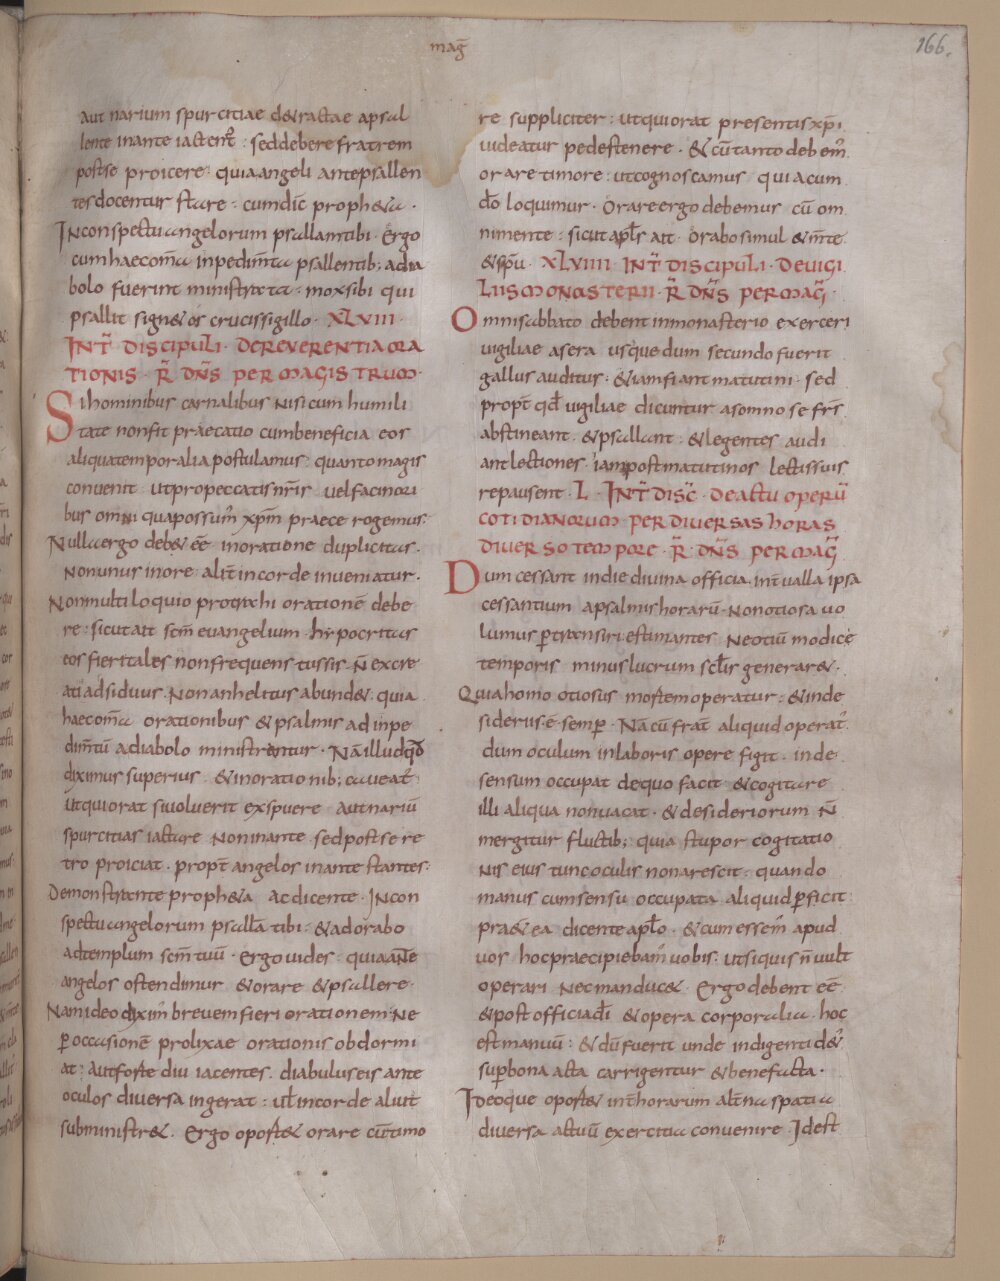 mag̅
166.
aut narium spurcitiae detractae apsal
lente inante iactent᷒ : seddebere fratrem
postse proicere : quia angeli antepsallen
tes docentur stare : cum dic̅ propheta ·
Inconspectu angelorum psallam tibi · Ergo
cum haec om̅a inpedim̅ta psallentib; adia
bolo fuerint ministrata : mox sibi qui
psallit signet os crucis sigillo · XLVIII ·
INT̅ DISCIPULI · DE REVERENTIA ORA
TIONIS · R̅ DN̅S PER MAGISTRUM ·
Si hominibus carnalibus nisi cum humili
tate non fit praecatio cum beneficia eos
aliqua temporalia postulamus : quanto magis
convenit ut pro peccatis nr̅is vel facinori
bus omni qua possum᷒ xp̅m praece rogemus :
Nulla ergo debet ee̅ in oratione duplicitas ·
Non unus in ore alit̅ in corde inveniatur ·
Non multiloquio protrahi oratione̅ debe
re : sicut ait sc̅m evangelium · hypocritas
eos fieri tales non frequens tussis · n̅ excre
atus adsiduus · Non anhelitus abundet · quia
haec om̅a orationibus & psalmis ad inpe
dim̅tu̅ a diabolo ministrantur · Na̅ illud qđ
diximus superius · & in orationib; caveat᷒
ut qui orat si voluerit exspuere aut nariu̅
spurcitias iactare non inante sed postse re
tro proiciat · propt̅ angelos inante stantes ·
Demonstrante propheta ac dicente · In con
spectu angelorum psalla̅ tibi : & adorabo
ad templum sc̅m tuu̅ · Ergo vides : quia an̅te
angelos ostendimur & orare & psallere ·
Nam ideo dixim᷒ brevem fieri orationem : Ne
p̱ occasione̅ prolixae orationis obdormi
at : Aut forte diu iacentes · diabulus eis ante
oculos diversa ingerat : vel̅ in corde aliut
subministret · Ergo oportet orare cu̅ timo
re suppliciter : ut qui orat presentis xp̅i
videatur pedes tenere · & cu̅ tanto debem᷒
orare timore : ut cognoscamus qui a cum
do̅ loquimur · Orare ergo debemus cu̅ om
ni mente : sicut apl̅s ait · Orabo simul & m̅te
& sp̅u · XLVIIII INT̅ DISCIPULI · DE VIGI
LIIS MONASTERII · R̅ DN̅S PER MAG̅ ·
Omni sabbato debent in monasterio exerceri
vigiliae a sera usque dum secundo fuerit
gallus auditus · & iam fiant matutini · sed
propt̅ qđ vigiliae dicuntur a somno se frs̅
abstineant · & psallant · & legentes audi
ant lectiones · iam post matutinos lectis suis
repausent · L · INT̅ DISC̅ · DE ACTU OPERU̅
COTIDIANORUM PER DIVERSAS HORAS
DIVERSO TEMPORE · R̅ DN̅S PER MAG̅
Dum cessant in die divina officia · int̅valla ipsa
cessantium a psalmis horaru̅ · Non otiosa vo
lumus p̱transiri estimantes ne otiu̅ modice
temporis minus lucrum sc̅lis generaret ·
Quia homo otiosus mortem operatur : & in de
sideriis e̅ semp̱ · Na̅ cu̅ frat̅ aliquid operat᷒
dum oculum in laboris opere figit · inde
sensum occupat de quo facit · & cogitare
illi aliqua non vacat · & desideriorum n̅
mergitur fluctib; quia stupor cogitatio
nis eius tunc oculis non arescit · quando
manus cum sensu occupata aliquid p̱ficit ·
praeterea dicente apl̅o · & cum essem᷒ apud
vos hoc praecipiebam᷒ vobis : ut si quis n̅ vult
operari nec manducet · Ergo debent ee̅
& post officia di̅ & opera corporalia · hoc
est manuu̅ : & du̅ fuerit unde indigenti det᷒
sup̱ bona acta carrigentur & benefacta ·
Ideoque oportet int̅ horarum alt̅na spatia
diversa actuu̅ exercitia convenire · Id est